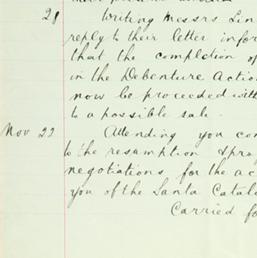 28 Writing Messrs Lin
reply to their letter infor
that the completion of
in the Debenture Action
now be proceeded with
to a possible sale.
Nov 22 Attending you con
to the resumption & prog
negotiations for the ac
you of the Santa Catal
Carried fo